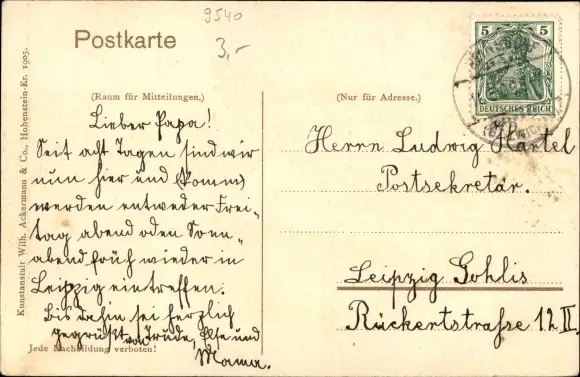 9540
3,-
Postkarte
5 5
DEUTSCHES REICH
(Raum für Mitteilungen.)
(Nur für Adresse.)
Lieber Papa!
Seit acht Tagen sind wir
nun hier und (Komm)
werden entweder Frei-
tag abend oden Sonn-
abend früh wieder in
Leipzig eintreffen.
Bis dahin sei herzlich
gegrüßt von Trude, Else und
Mama.
Herrn Ludwig Härtel
Postsekretär.
Leipzig Gohlis
Rückertstraße 12 II.
Kunstanstalt Wilh. Ackermann & Co., Hohenstein-Er. 1905.
Jede Nachbildung verboten!